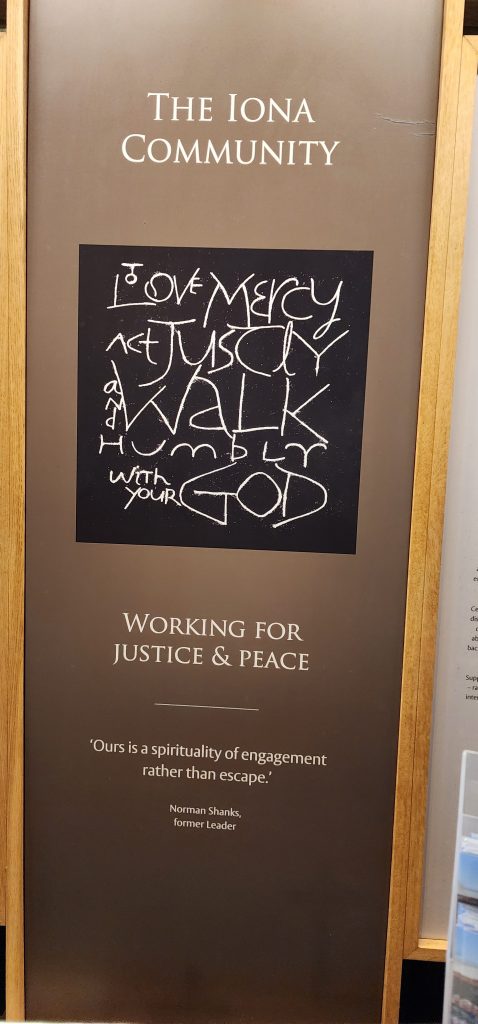 THE IONA
COMMUNITY
TO LOVE MERCY
ACT JUSTLY
AND WALK
HUMBLY
WITH YOUR GOD
WORKING FOR
JUSTICE & PEACE
‘Ours is a spirituality of engagement
rather than escape.’
Norman Shanks,
former Leader